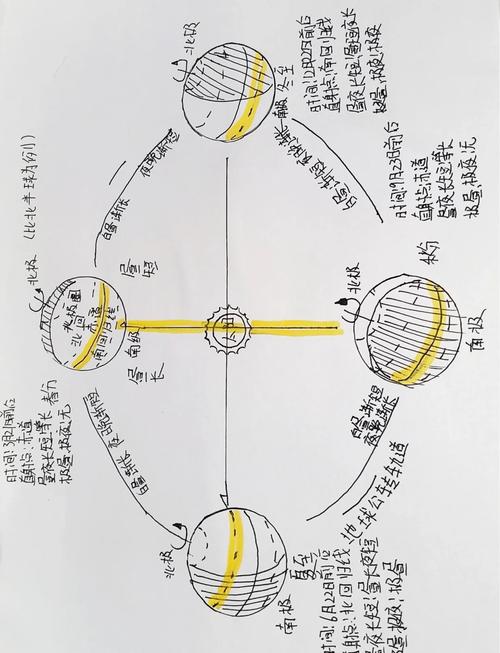 (以北半球为例)
北极
冬至
南极
时间:12月22日前后
直射点:南回归线
昼夜长短:昼短夜长
极昼,极夜:极夜
夜晚渐短
白昼渐长
时间:9月23日前后
直射点:赤道
昼夜长短:等长
极昼,极夜:无
秋分
北极
南极
北极
北极圈
北回
赤道
南回归线
南极
昼短
昼长
太阳
时间:3月21日前后
直射点:赤道
昼夜长短:等长
春分
极昼,极夜:无
白昼渐长
白昼渐短
夜晚渐长
地球公转轨道
北极
南极
夏至
时间:6月22日前后
直射点:北回归线
昼夜长短:昼长夜短
极昼,极夜:极昼